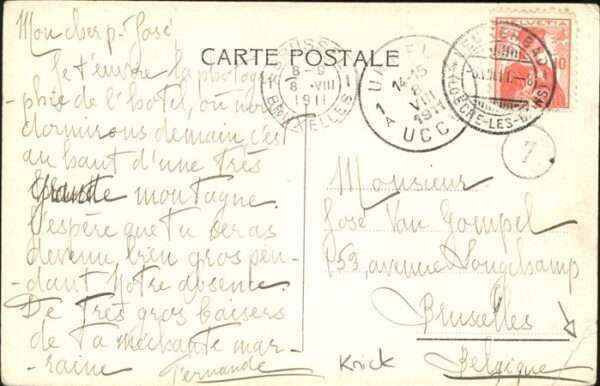 Mon cher p. José
CARTE POSTALE
Je t'envoie la photogra-
phie de l'hotel, où nous
dormirons demain c'est
au haut d'une très
grande montagne.
J'espère que tu seras
devenu bien gros pen-
dant notre absence.
De très gros baisers
de ta méchante mar-
raine Fernande
HELVETIA
BRUXELLES
8-9
8 VIII
1911
UCCLE
14-15
8
VIII
1911
1A
UCC
7
Monsieur
José Van Gompel
153, avenue Longchamp
Bruxelles
Belgique
Krick